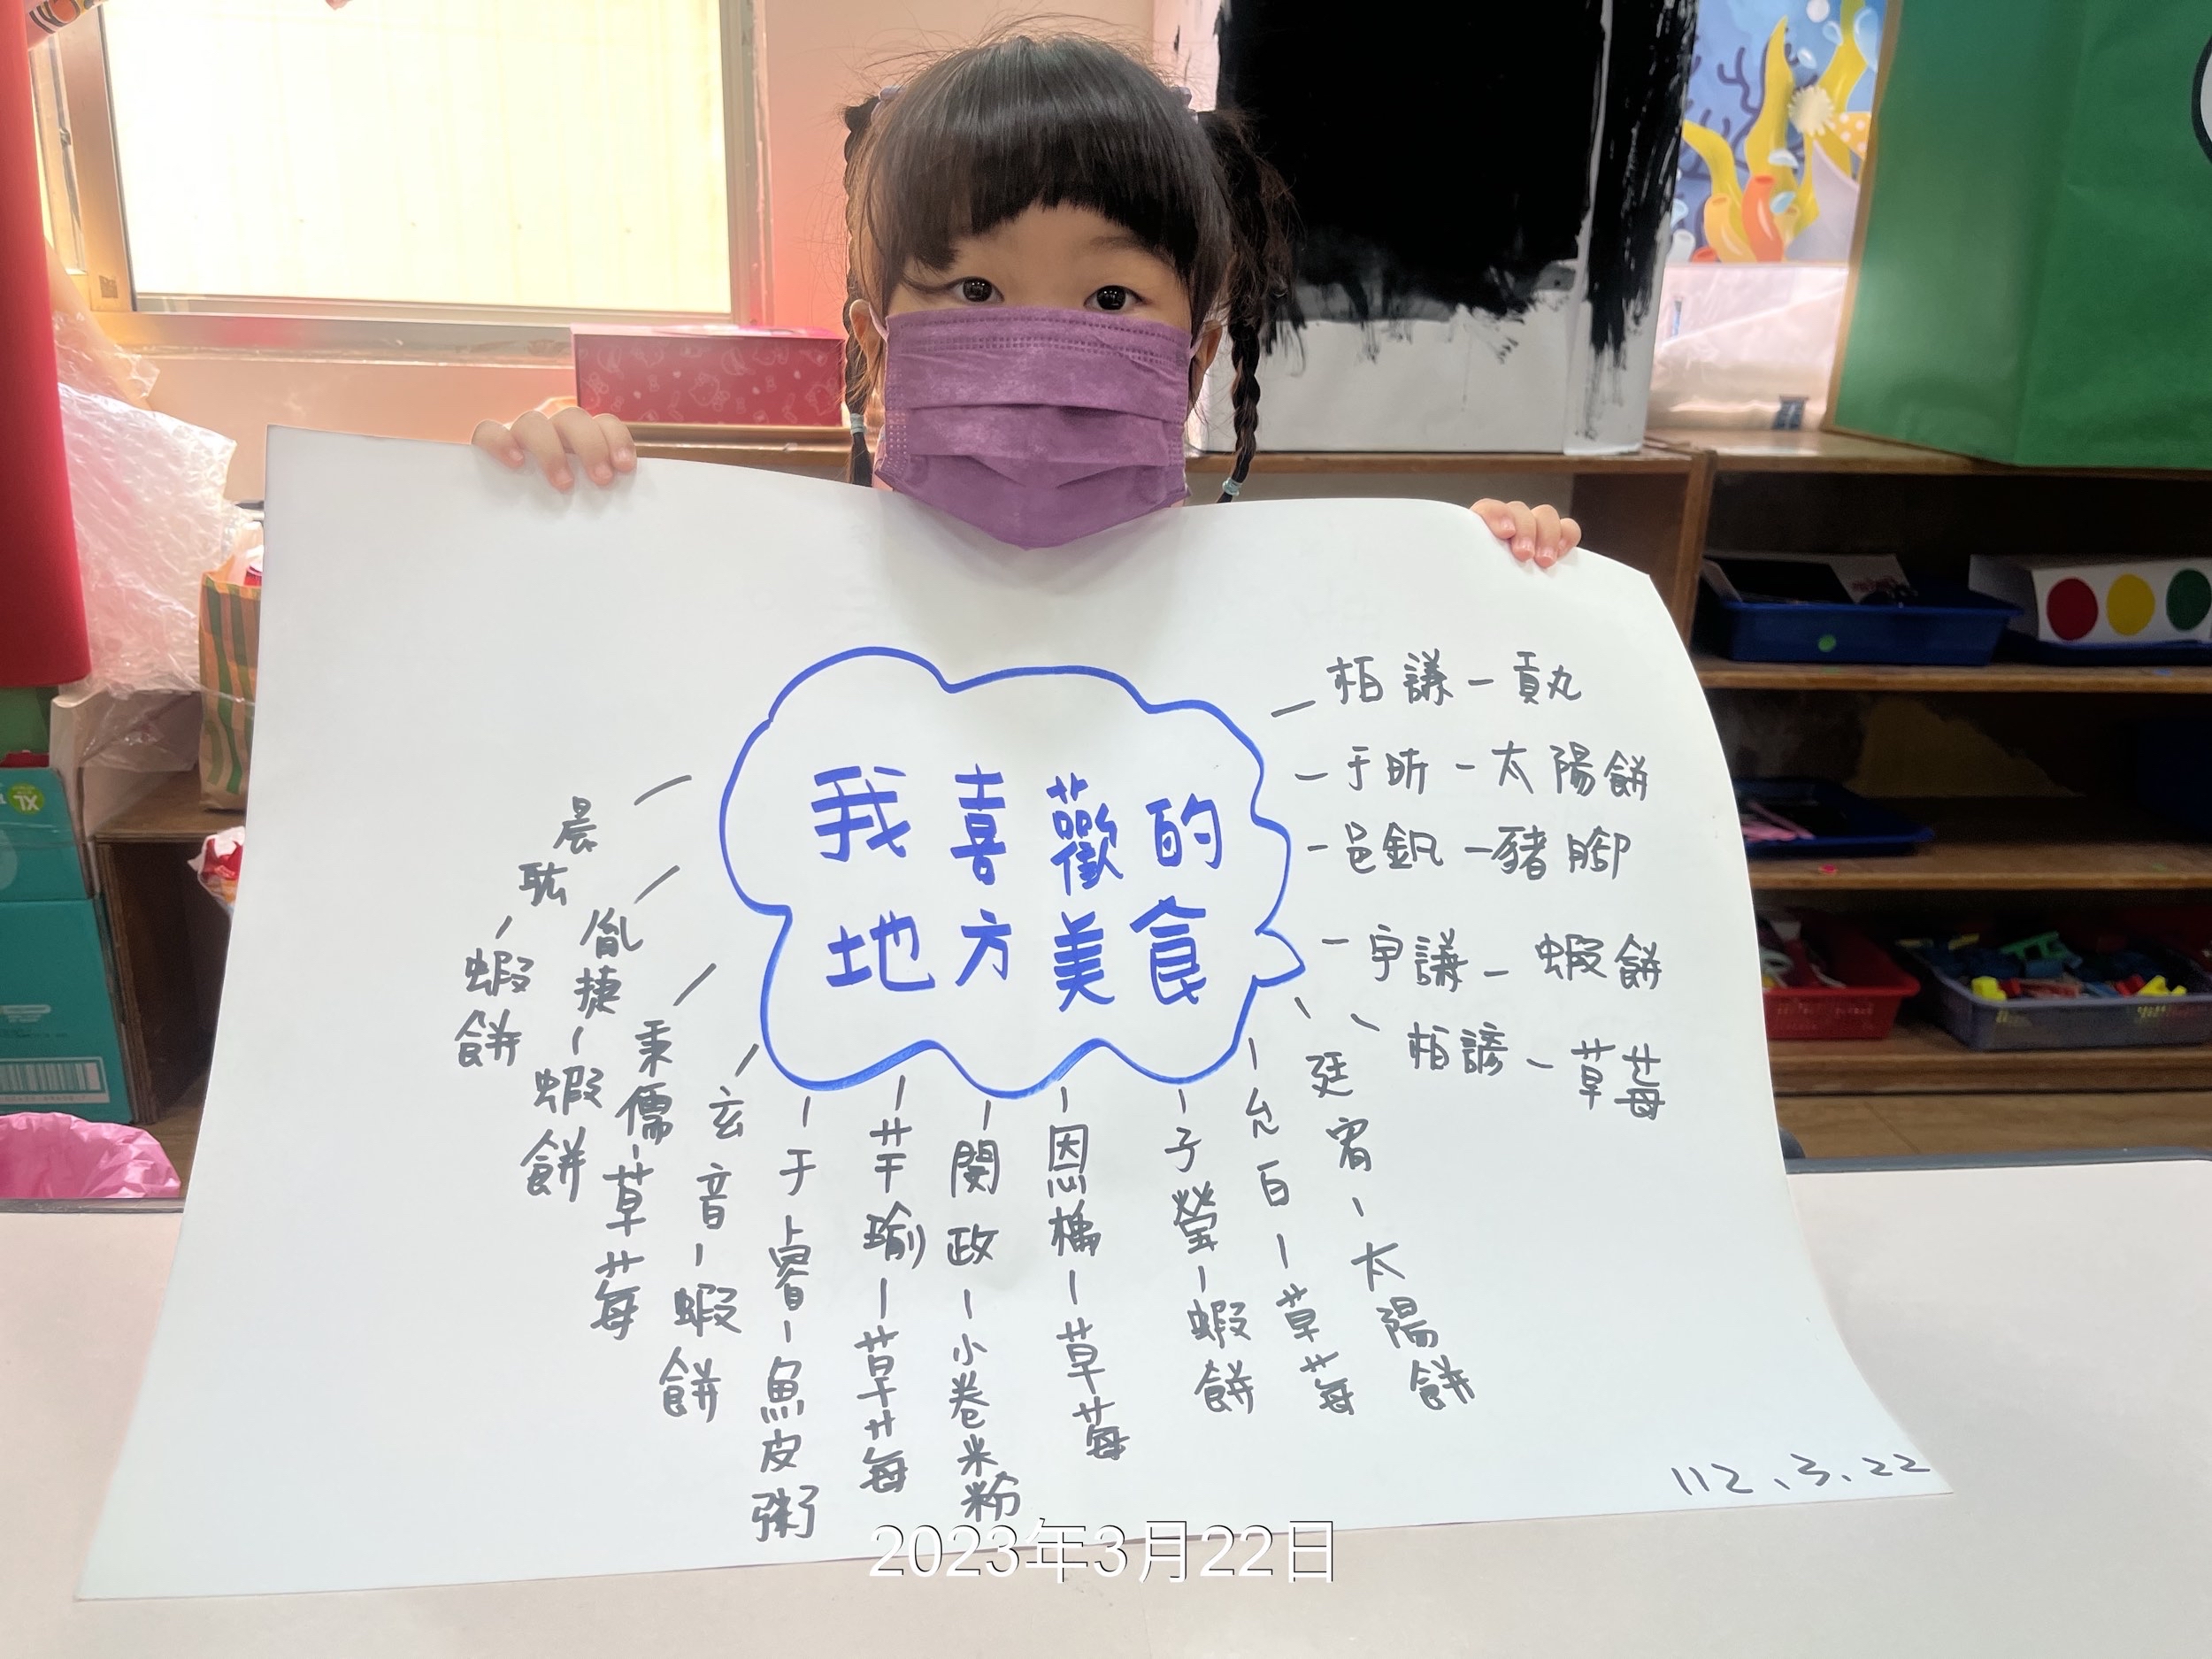 我喜歡的
地方美食
柏議-貢丸
于昕-太陽餅
邑釩-豬腳
宇謙-蝦餅
柏諺-草莓
廷宥-太陽餅
允百-草莓
子瑩-蝦餅
恩橘-草莓
閔政-小卷米粉
芊瑜-草莓
于睿-魚皮粥
玄音-蝦餅
秉儒-草莓
胤捷-蝦餅
晨耘-蝦餅
112.3.22
2023年3月22日
XL